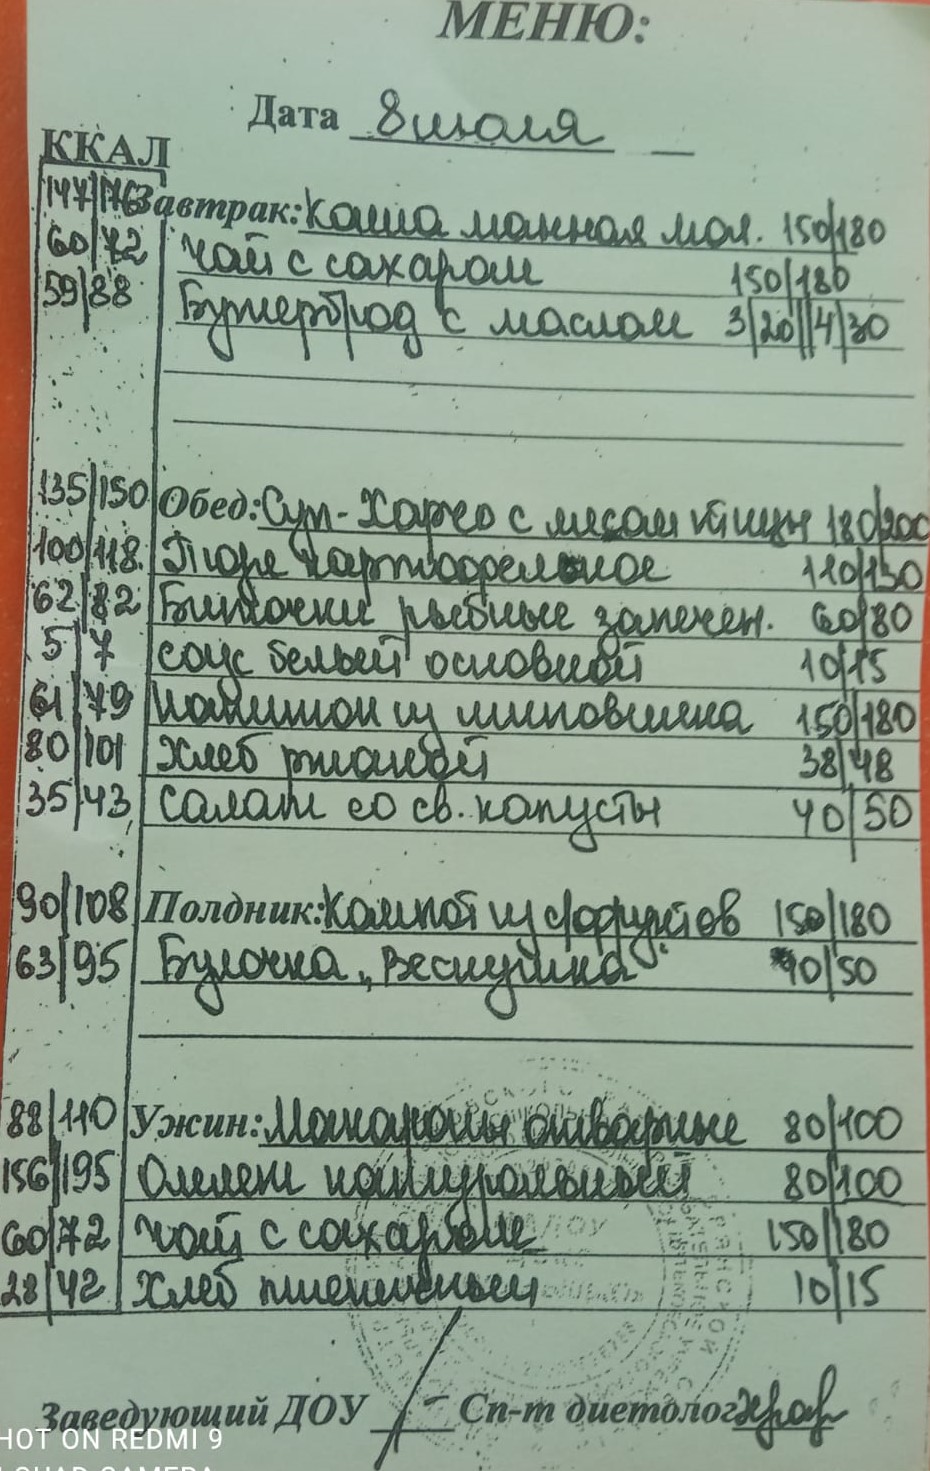 МЕНЮ:
Дата 8 июля
ККАЛ
147/176 Завтрак: Каша манная мол. 150/180
60/72 Чай с сахаром 150/180
59/88 Бутерброд с маслом 3/20//4/30
135/150 Обед: Суп-Харчо с мясом птицы 180/200
100/118 Пюре картофельное 110/130
62/82 Биточки рыбные запечен. 60/80
5/7 соус белый основной 10/15
61/79 напиток из шиповника 150/180
80/101 Хлеб ржаной 38/48
35/43 салат со св. капусты 40/50
90/108 Полдник: Компот из с/фруктов 150/180
63/95 Булочка „Веснушка" 40/50
88/110 Ужин: Макароны отварные 80/100
156/195 Омлет натуральный 80/100
60/72 Чай с сахаром 150/180
28/42 Хлеб пшеничный 10/15
Заведующий ДОУ Сп-т диетолог
SHOT ON REDMI 9
QUAD CAMERA